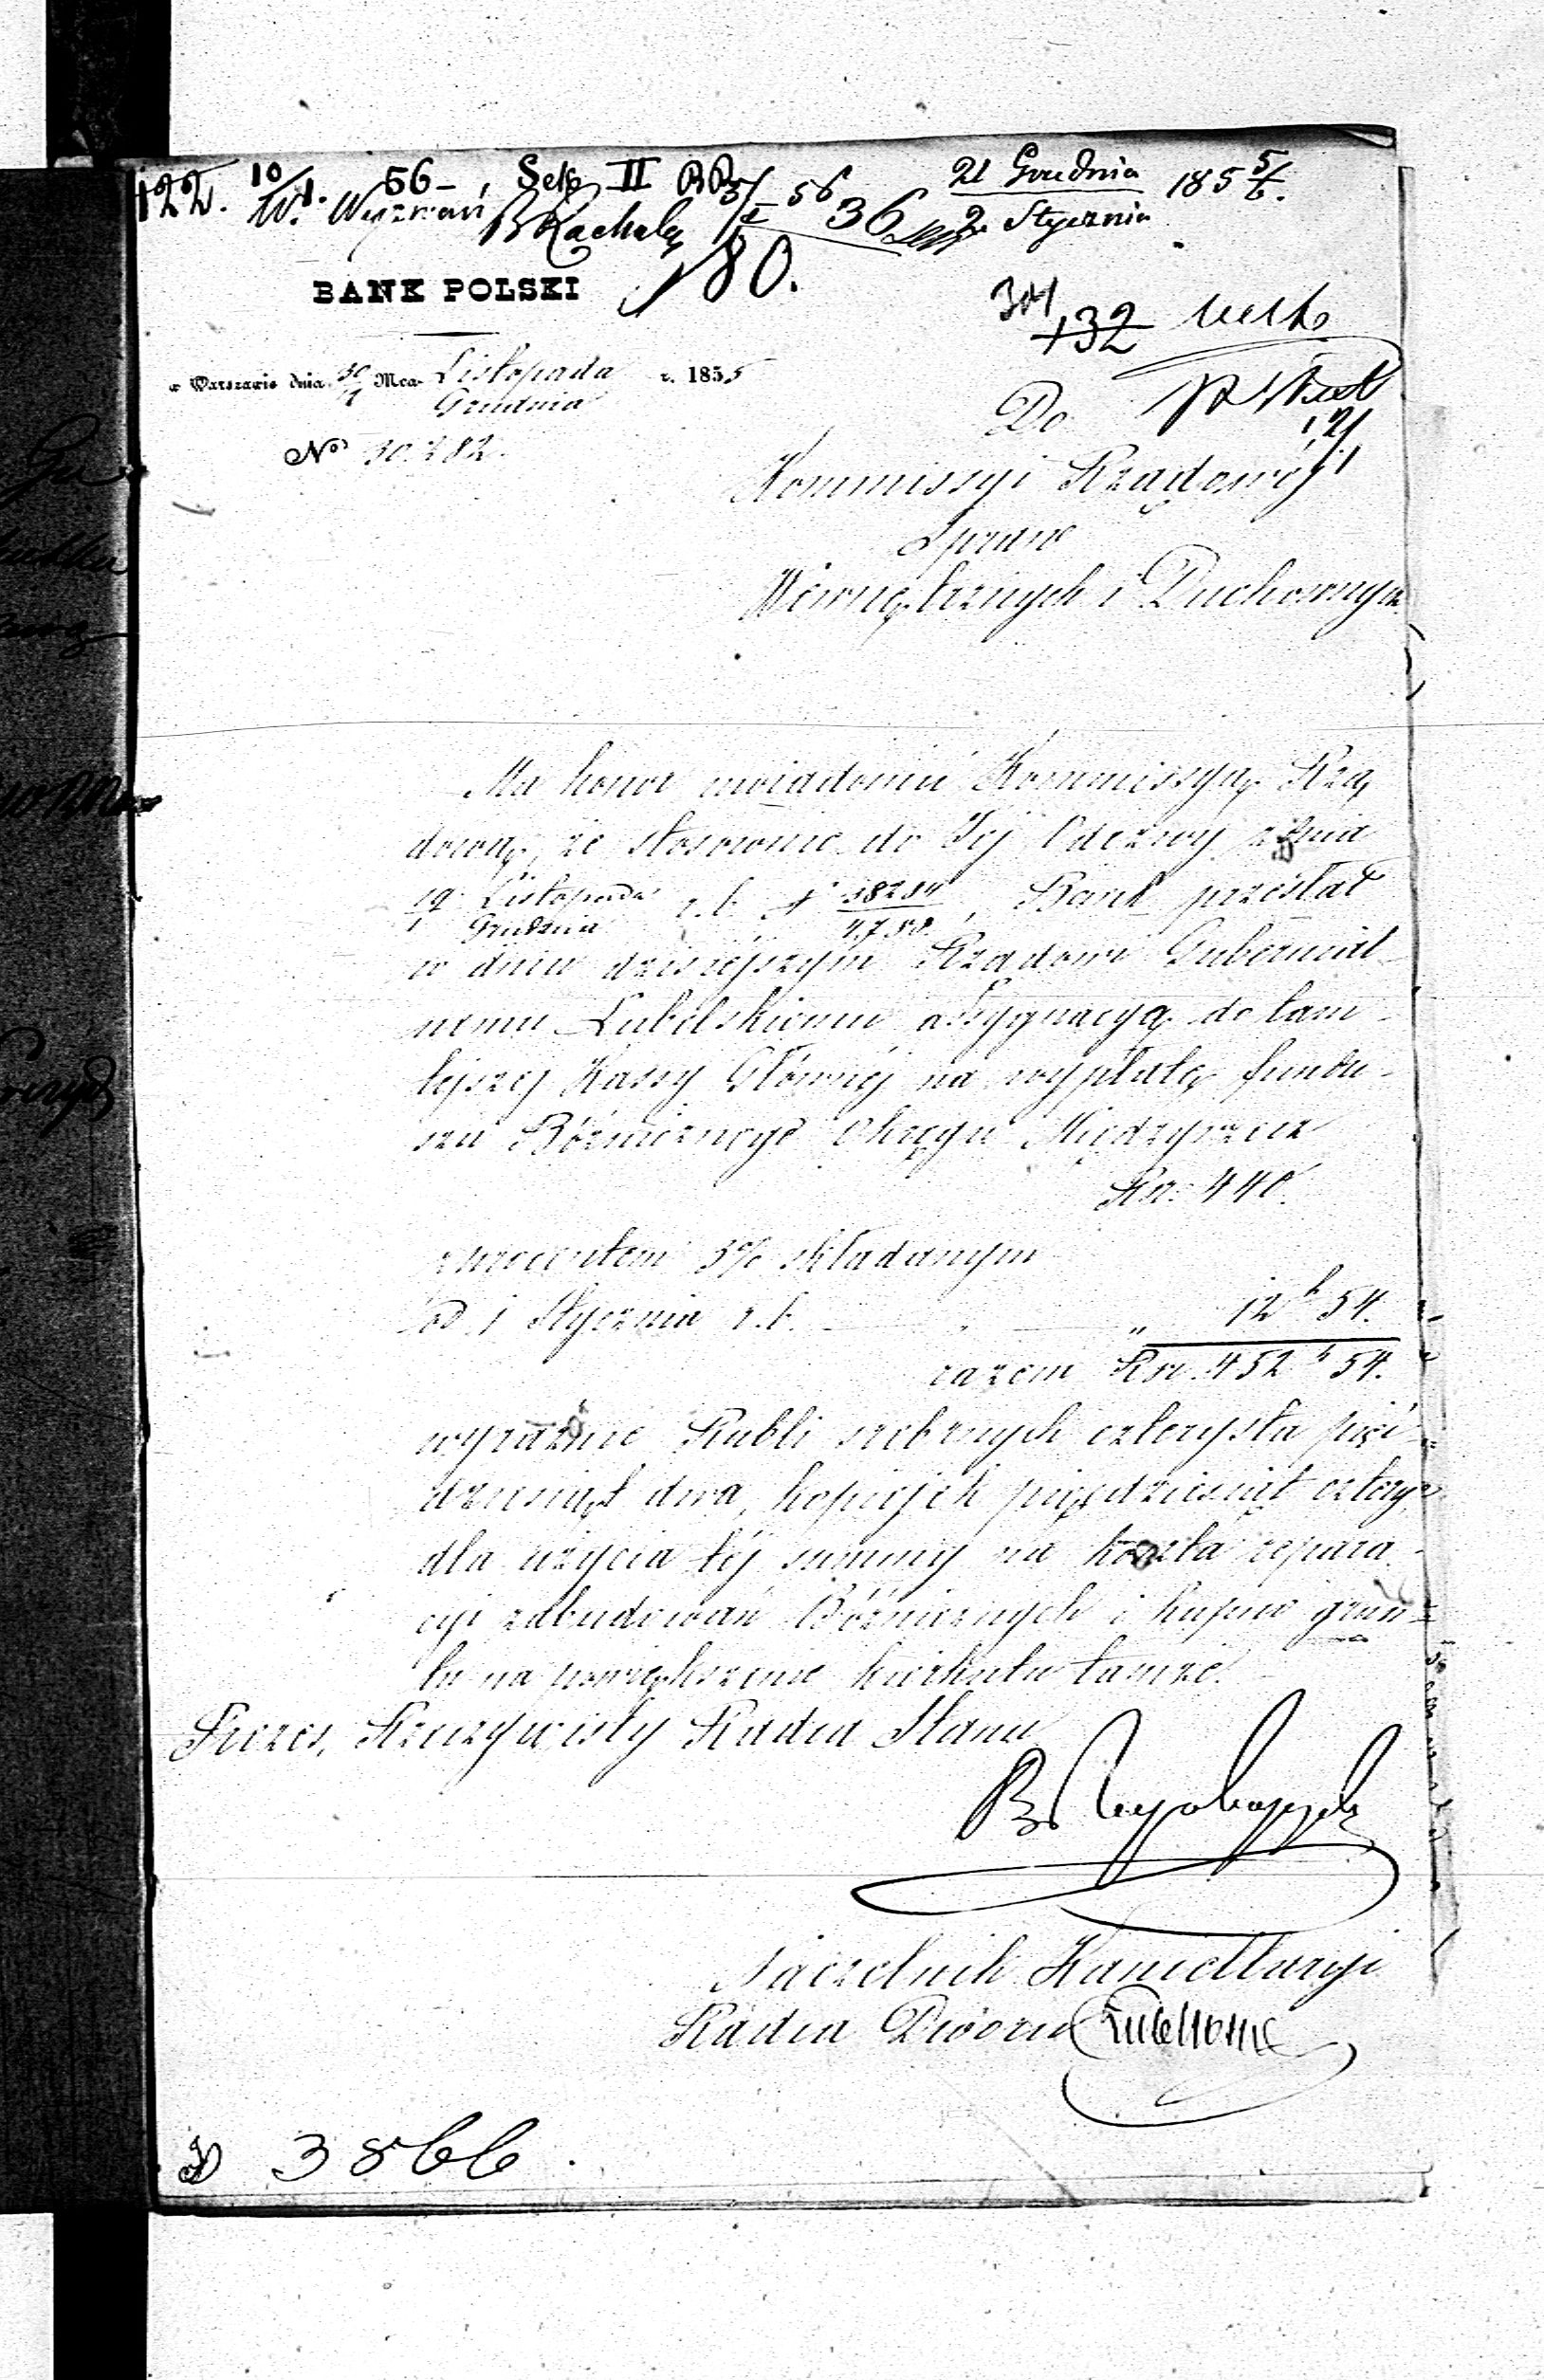 122. 10/1. 56 – , Sek II
W. Wyznań
21 Grudnia
2 Stycznia 185 5/6.
36
180.
BANK POLSKI
132
w Warszawie dnia Mca Listopada r. 1855
Grudnia
Do
No
Kommissyi Rządowéj
Spraw
Wewnętrznych i Duchownych
Ma honor uwiadomić Kommissyą Rzą
dową, że stosownie do Jéj Odezwy z dnia
19 Listopada
1 Grudnia r. b. Bank przesłał
w dniu dzisiéjszym Rządowi Gubernial
nemu Lubelskiemu assygnacyą do tam
téjszéj Kassy Głównéj na wypłatę fundu-
szu Bóżniczego Okręgu Międzyrzecz
Rsr. 440.
z procentem 3% składanym
od 1 Stycznia r. b. „ 12 k 54.
razem Rsr. 452 k 54.
wyraźnie Rubli srebrnych czterysta pięć
dziesiąt dwa, kopiejek pięćdziesiąt cztery
dla użycia téj summy na koszta repara-
cyi zabudowań Bóżniczych i kupno grun-
tu na powiększenie kirkutu tamże.
Prezes, Rzeczywisty Radca Stanu
Naczelnik Kancellaryi
Radca Dworu
3866.